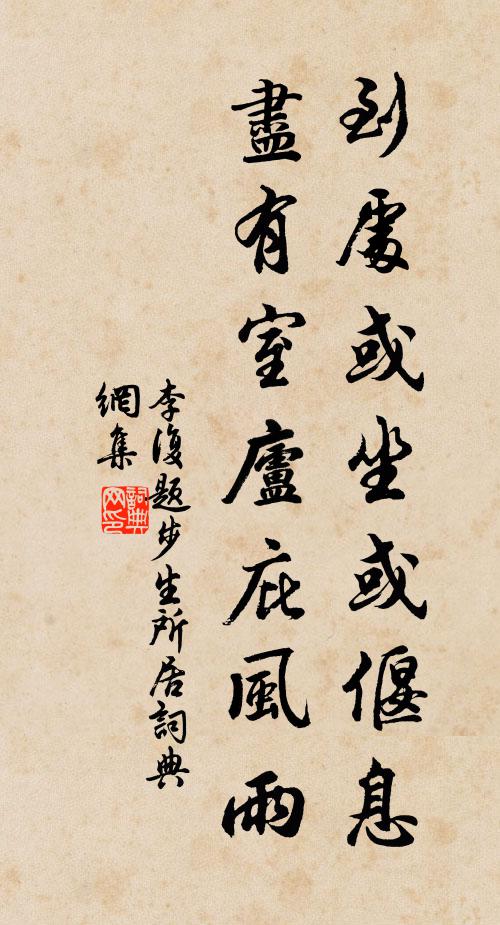 到處或坐或偃息
盡有室廬庇風雨
李復題步生所居詞典
網集
詞典
网印